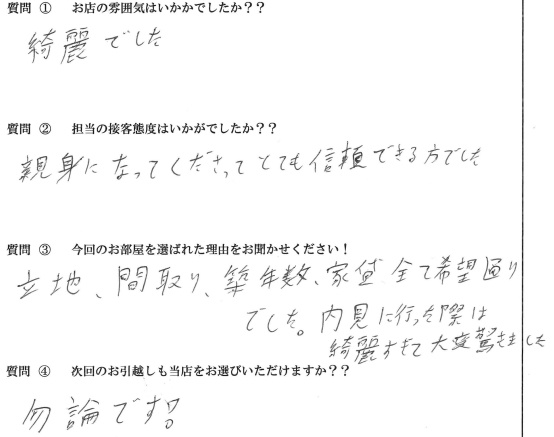 質問 ① お店の雰囲気はいかかでしたか？？
綺麗でした
質問 ② 担当の接客態度はいかがでしたか？？
親身になってくださってとても信頼できる方でした
質問 ③ 今回のお部屋を選ばれた理由をお聞かせください！
立地、間取り、築年数、家賃全て希望通り
でした。内見に行った際は
綺麗すぎて大変驚きました
質問 ④ 次回のお引越しも当店をお選びいただけますか？？
勿論です!!